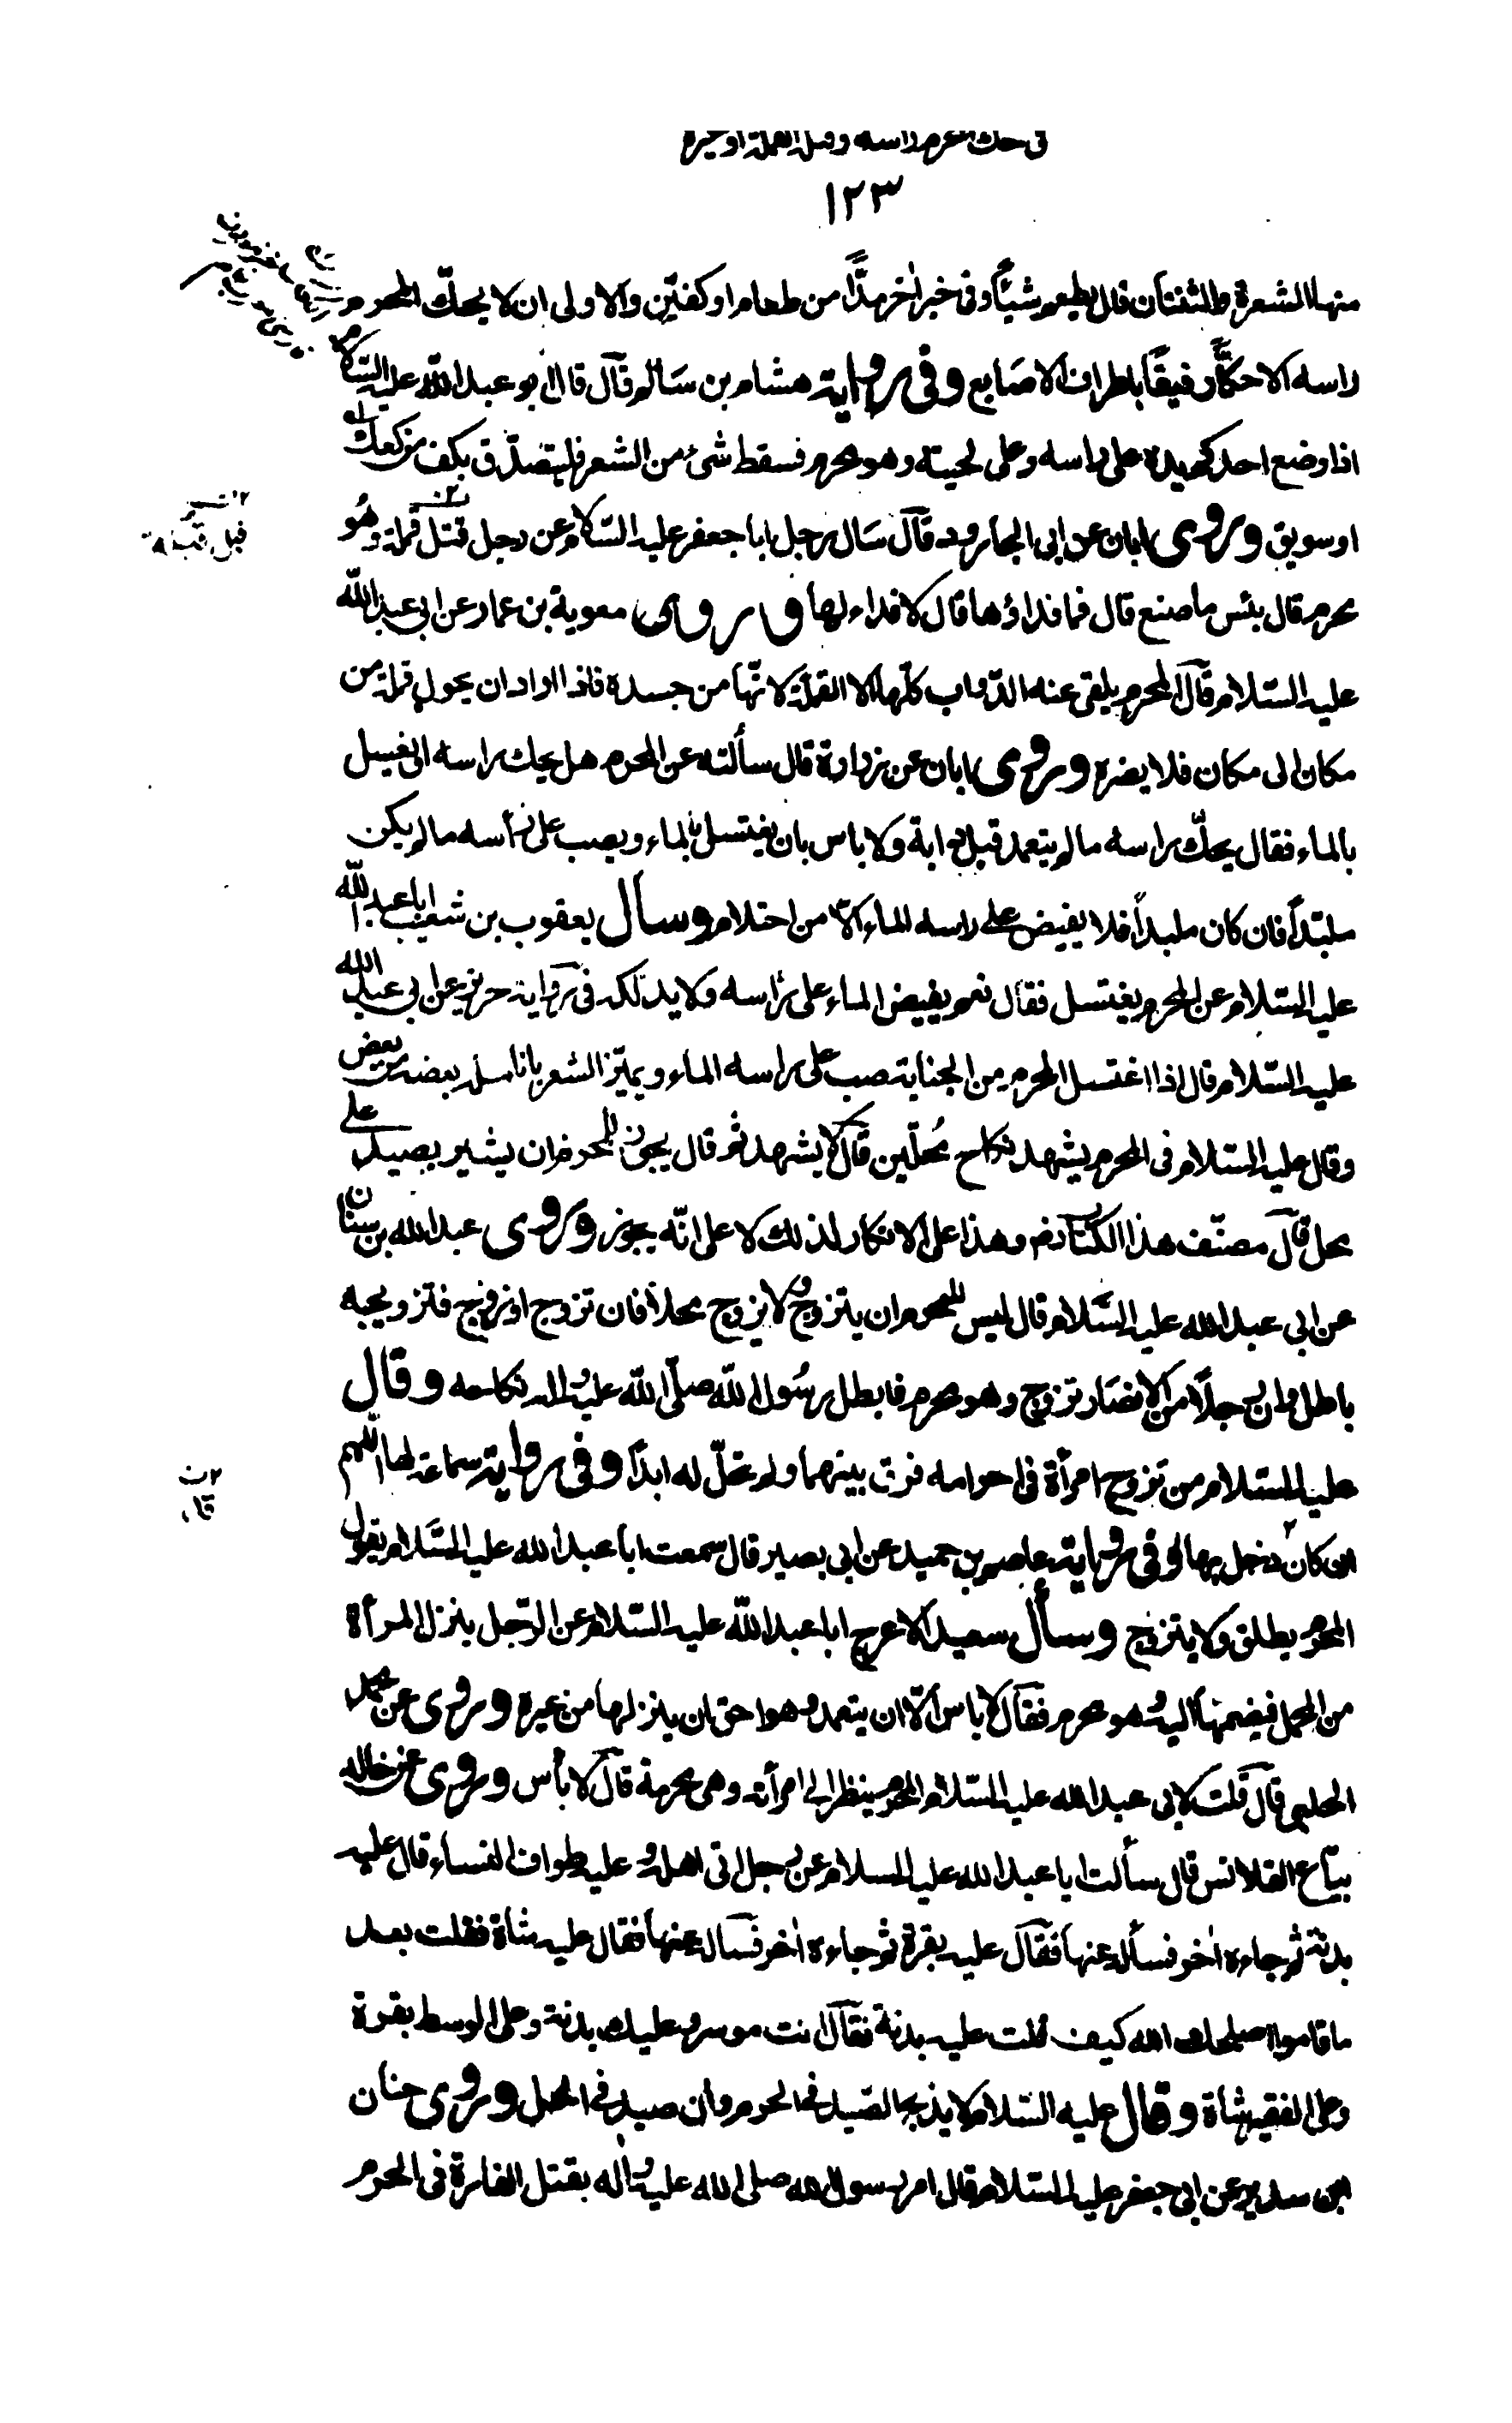 فى حك المحرم راسه وقتله القملة او غيره
١٢٣
منها الشعرة والثنتان قال يطعم شيئاً وفى خبر اٰخر مدّاً من طعام او كفّين والاولى ان لا يحكّ المحرم
راسه الا حكّاً رفيقاً باطراف الاصابع وفى رواية هشام بن سالم قال قال ابو عبد اللّه عليه السّلام
اذا وضع احدكم يده على راسه وعلى لحيته وهو محرم فسقط شئ من الشعر فليتصدّق بكف من كعك
او سويق وروى ابان عن ابى الجارود قال سال رجل ابا جعفر عليه السّلام عن رجل قتل قملة وهُو
محرم قال بئس ما صنع قال فما فداؤها قال لا فداء لها وروى معوية بن عمار عن ابى عبد اللّه
عليه السّلام قال المحرم يلقى عنه الدّواب كلّها الا القملة لانّها من جسده فاذا اراد ان يحول قملة من
مكان الى مكان فلا يضره وروى ابان عن زرارة قال سألته عن المحرم هل يحك راسه او يغتسل
بالماء فقال يحكّ راسه ما لم يتعمد قبل دابة ولا باس بان يغتسل بالماء ويصب على رأسه ما لم يكن
ملبّداً فان كان ملبداً فلا يفيض على راسه الماء الّا من احتلام وسال يعقوب بن شعيب ابا عبد اللّه
عليه السّلام عن المحرم يغتسل فقال نعم يفيض الماء على رأسه ولا يدلكه فى رواية حريز عن ابى عبد الله
عليه السّلام قال اذا اغتسل المحرم من الجنابة صب على راسه الماء ويميّز الشعر بانامله بعضه من بعض
وقال عليه السّلام فى المحرم يشهد نكاح مُحلّين قال لا يشهد ثم قال يجوز للمحرم ان يشير بصيد على
محل قال مصنّف هذا الكتاب رض وهذا على الانكار لذلك لا على انّه يجوز وروى عبد الله بن سنان
عن ابى عبد الله عليه السّلام قال ليس للمحرم ان يتزوج ولا يزوج محلاً فان تزوج او زوج فتزويجه
باطل وان رجلاً من الانصار تزوج وهو محرم فابطل رسُول اللّه صلّى اللّه عليه واله نكاحه وقال
عليه السّلام من تزوج امرأة فى احرامه فرق بينهما ولم تحلّ له ابداً وفى رواية سماعة لها المهر
ان كان دخل بها وفى رواية عاصم بن حميد عن ابى بصير قال سمعت ابا عبد الله عليه السّلام يقول
المحرم يطلق ولا يتزوج وسأل سعيد الاعرج ابا عبد اللّه عليه السّلام عن الرّجل ينزل المرأة
من المحمل فيضمها اليه وهو محرم فقال لا باس الّا ان يتعمد وهو احق ان ينزلها من غيره وروى عن محمد
الحلبى قال قلت لابى عبد الله عليه السّلام المحرم ينظر الى امرأته وهى محرمة قال لا بأس وروى عن خالد
بيّاع القلانس قال سألت ابا عبد الله عليه السلام عن رجل اتى اهله وعليه طواف النساء قال عليه
بدنة ثم جاءه اٰخر فسأله عنها فقال عليه بقرة ثم جاءه اٰخر فسأله عنها فقال عليه شاة فقلت بعد
ما قاموا اصلحك الله كيف قلت عليه بدنة فقال انت موسر وعليك بدنة وعلى الوسط بقرة
وعلى الفقير شاة وقال عليه السّلام لا يذبح الصّيد فى الحرم وان صيد فى الحل وروى حنان
بن سدير عن ابى جعفر عليه السّلام قال امر رسول الله صلى الله عليه واٰله بقتل الفارة فى الحرم